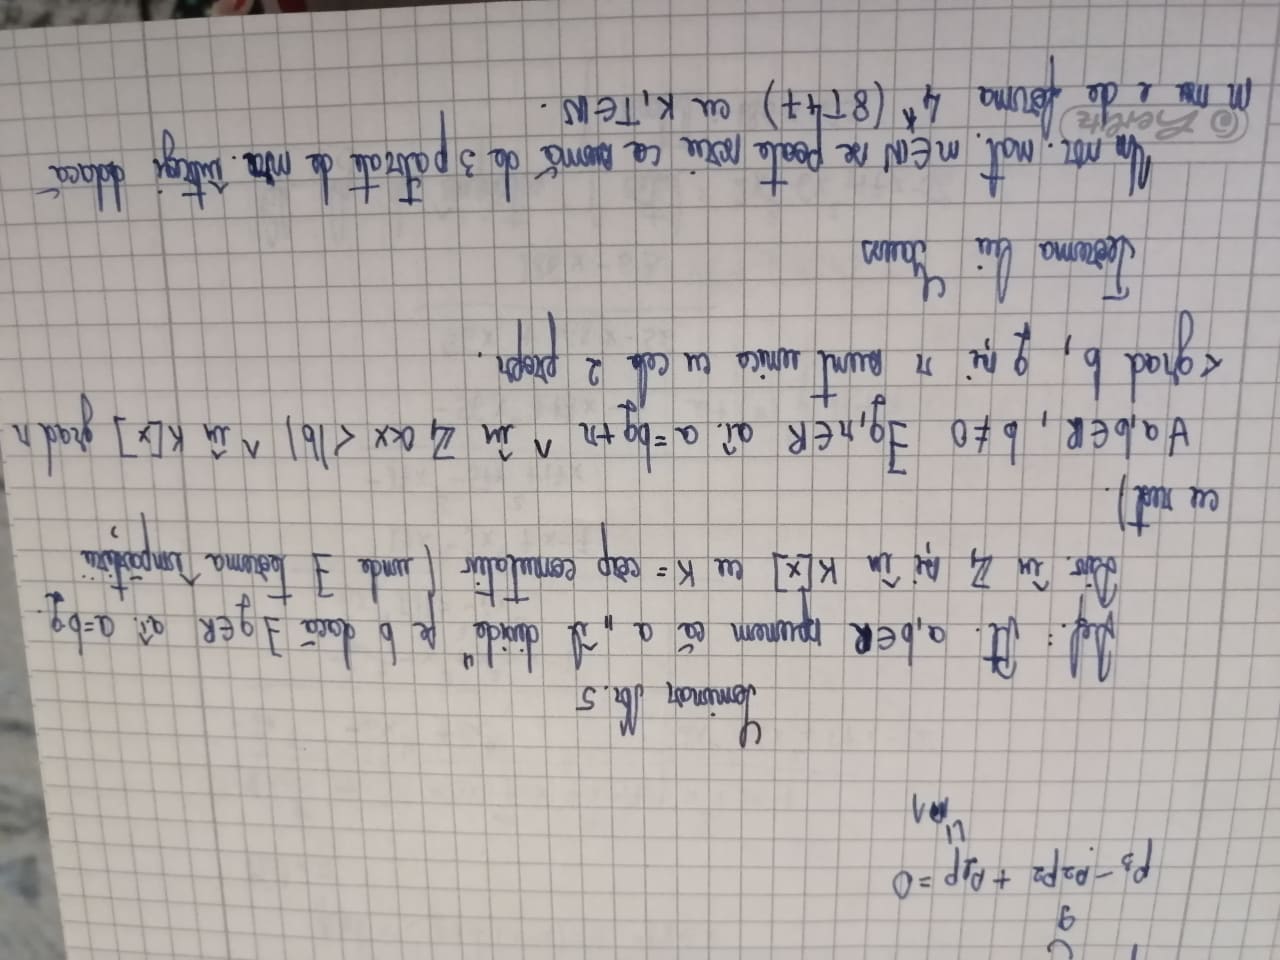 g
p₃ - p₂p₂ + p₂p = 0
Seminar Nr. 5
Def.: Pt. a,b∈R spunem că a „îl divide" pe b dacă ∃ q∈R aî. a=bq.
Div. în ℤ și în K[x] cu K = corp comutativ (unde ∃ teorema împărțirii
cu rest).
∀ a,b∈R, b≠0 ∃ q,r∈R aî. a=bq+r ^ în ℤ, 0≤r<|b| ^ în K[x] grad r
< grad b, q și r sunt unice cu cele 2 propr.
Teorema lui Gauss
Un nr. nat. m∈ℕ se poate scrie ca sumă de 3 pătrate de nr. întregi ddacă
m nu e de forma 4ᵏ(8T+7) cu K,T∈ℕ.